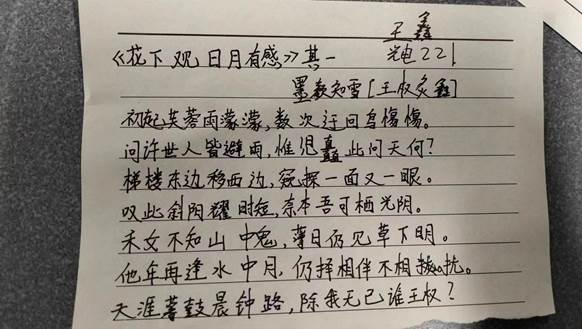 王鑫
光电221
《花下观日月有感》其一
墨敖知雪[王权炙鑫]
初起芙蓉雨濛濛，数次迂回鸟傷傷。
问许世人皆避雨，惟児驫此问天何？
梯楼东边移西边，窥探一面又一眼。
叹此斜阴耀时短，奈本吾可栖光阴。
禾女不知山中鬼，草日仍见草下明。
他年再逢水中月，仍择相伴不相扰。
天涯暮鼓晨钟路，除我无已谁王权？